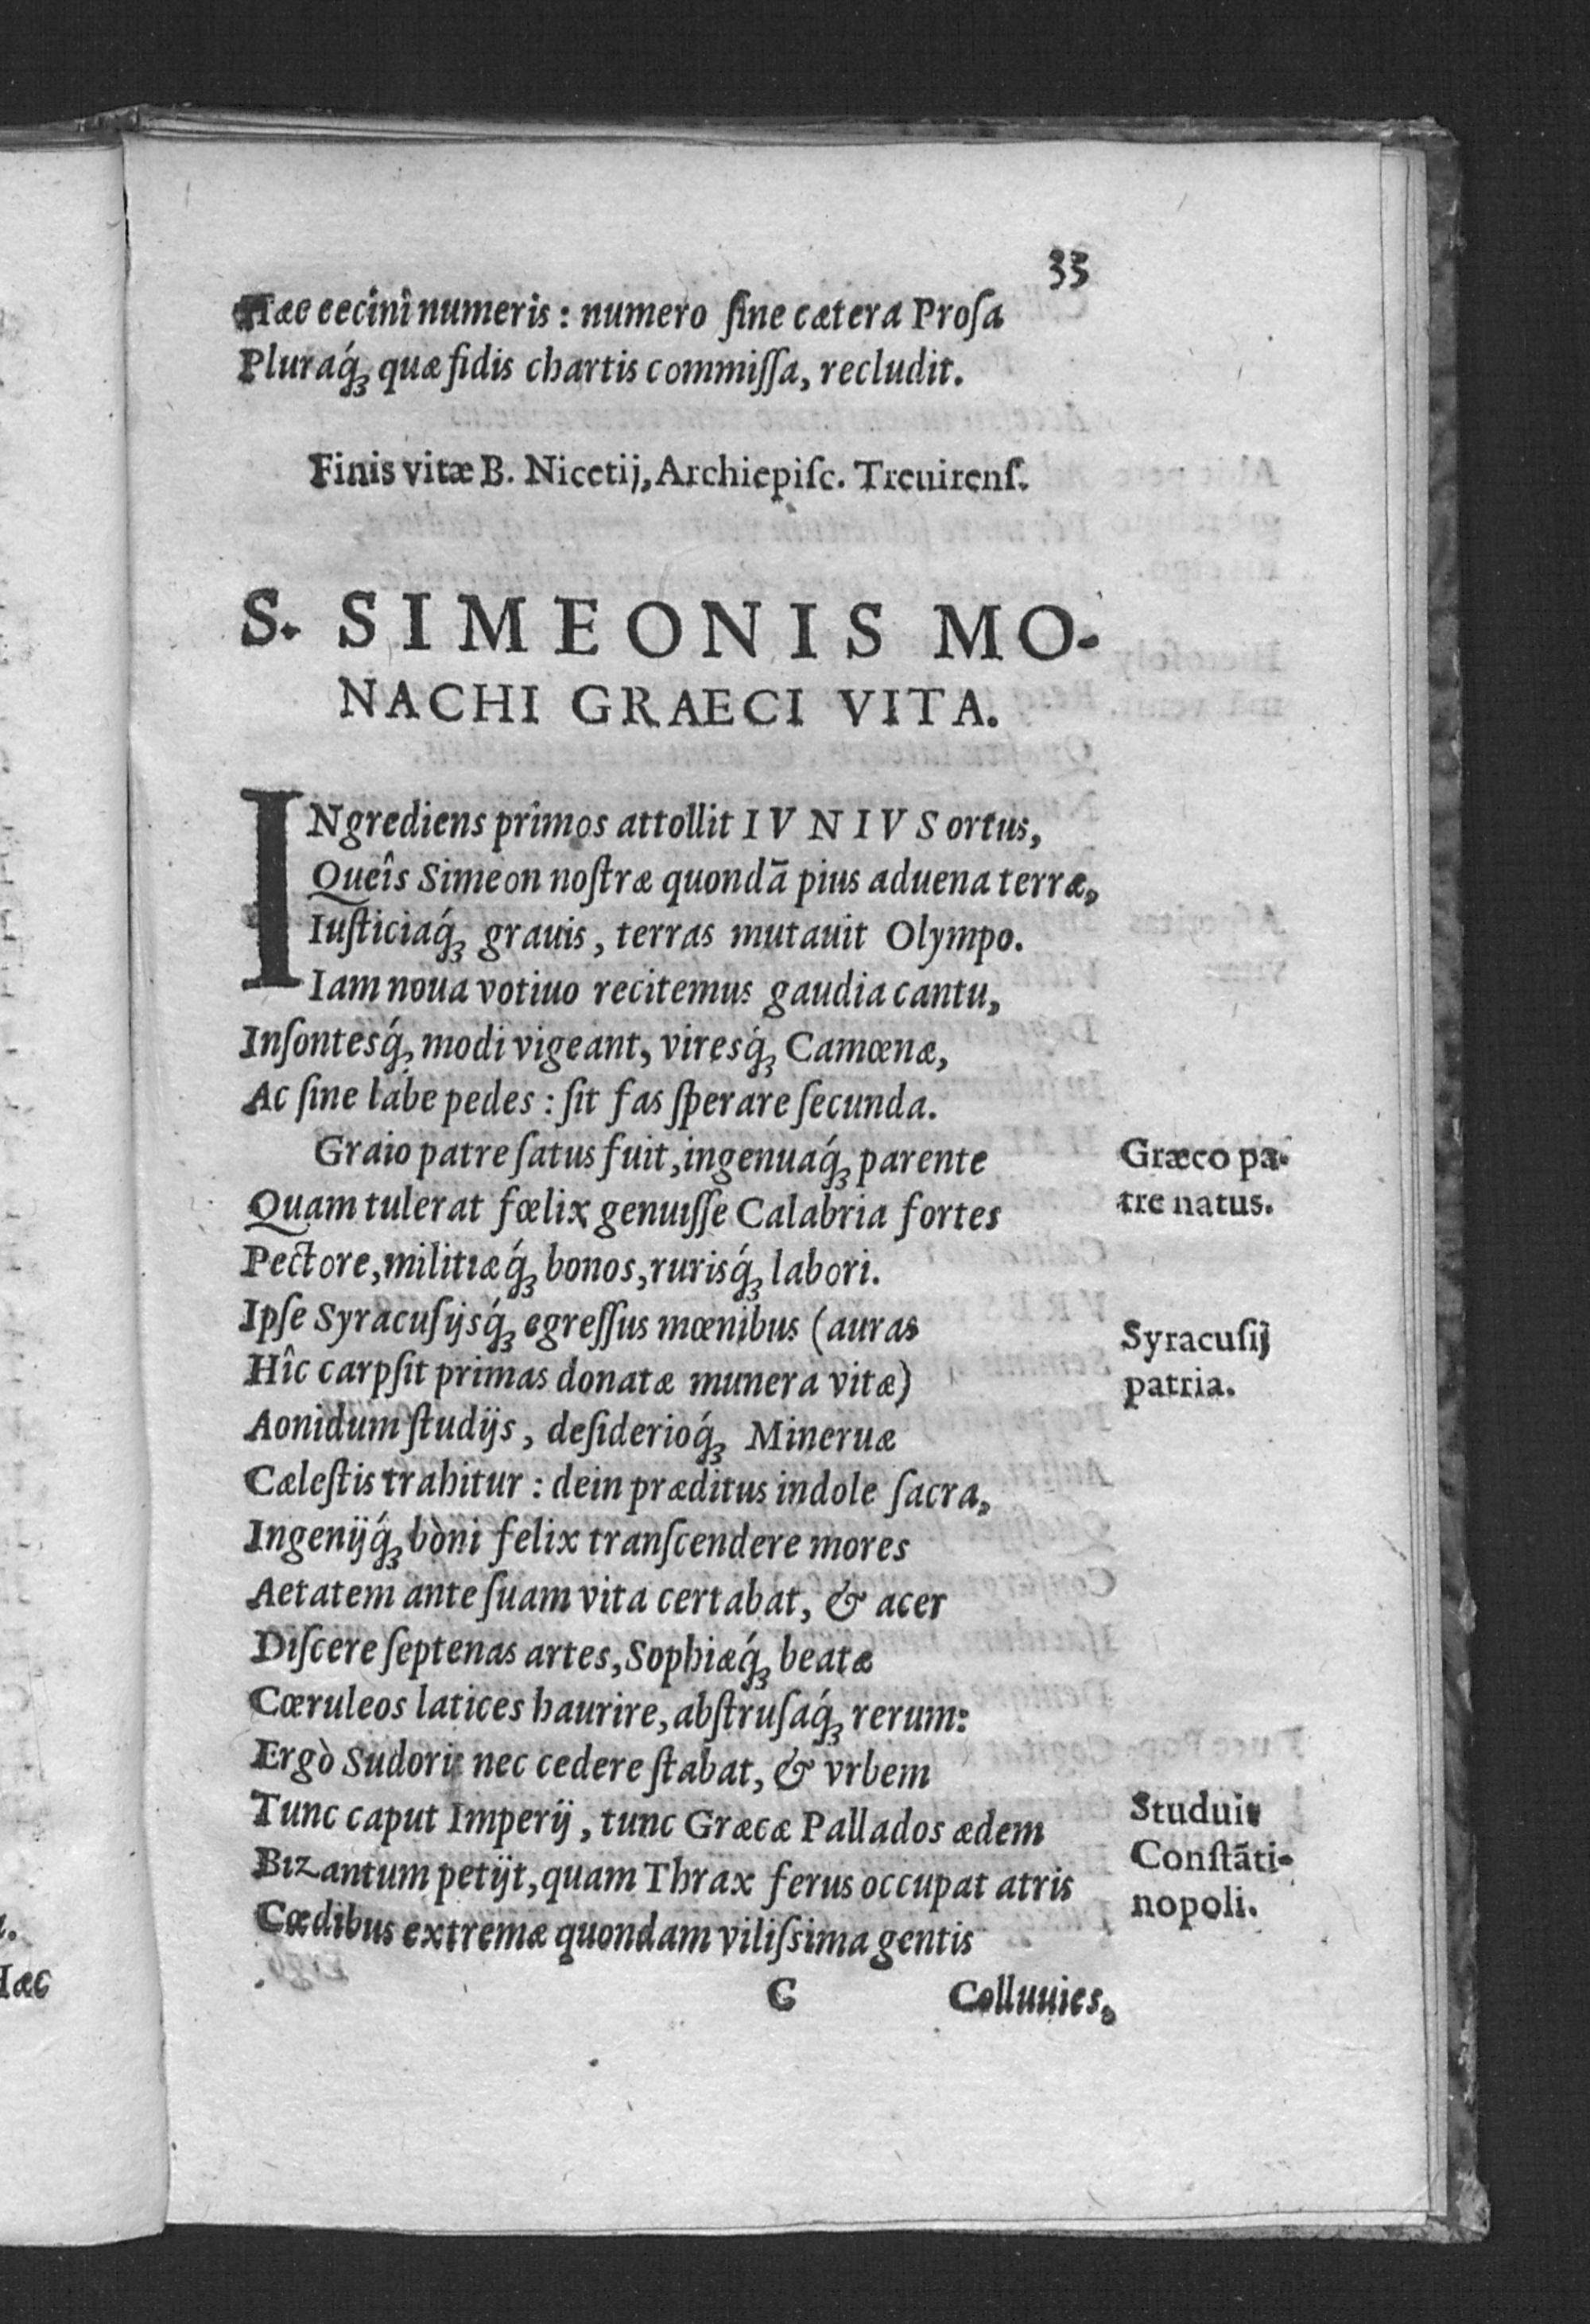 33
Hæc cecini numeris: numero ſine cætera Proſa
Pluraq́ꝫ quæ fidis chartis commiſſa, recludit.
Finis vitæ B. Nicetij, Archiepiſc. Treuirenſ.
S. SIMEONIS MO-
NACHI GRAECI VITA.
INgrediens primos attollit IVNIVS ortus,
Queîs Simeon noſtræ quondā pius aduena terræ,
Iuſticiaq́ꝫ grauis, terras mutauit Olympo.
Iam noua votiuo recitemus gaudia cantu,
Inſontesq́ꝫ modi vigeant, viresq́ꝫ Camœnæ,
Ac ſine labe pedes: ſit fas ſperare ſecunda.
Graio patre ſatus fuit, ingenuaq́ꝫ parente
Græco pa-
tre natus.
Quam tulerat fœlix genuiſſe Calabria fortes
Pectore, militiæq́ꝫ bonos, rurisq́ꝫ labori.
Ipſe Syracuſijsq́ꝫ egreſſus mœnibus (auras
Syracuſij
patria.
Hîc carpſit primas donatæ munera vitæ)
Aonidum ſtudijs, deſiderioq́ꝫ Mineruæ
Cæleſtis trahitur: dein præditus indole ſacra,
Ingenijq́ꝫ bòni felix tranſcendere mores
Aetatem ante ſuam vita certabat, & acer
Diſcere ſeptenas artes, Sophiæq́ꝫ beatæ
Cœruleos latices haurire, abſtruſaq́ꝫ rerum:
Ergò Sudori nec cedere ſtabat, & vrbem
Tunc caput Imperij, tunc Græcæ Pallados ædem
Studuit
Conſtāti-
nopoli.
Bizantum petijt, quam Thrax ferus occupat atris
Cædibus extremæ quondam viliſsima gentis
C
Colluuies,
Hæc